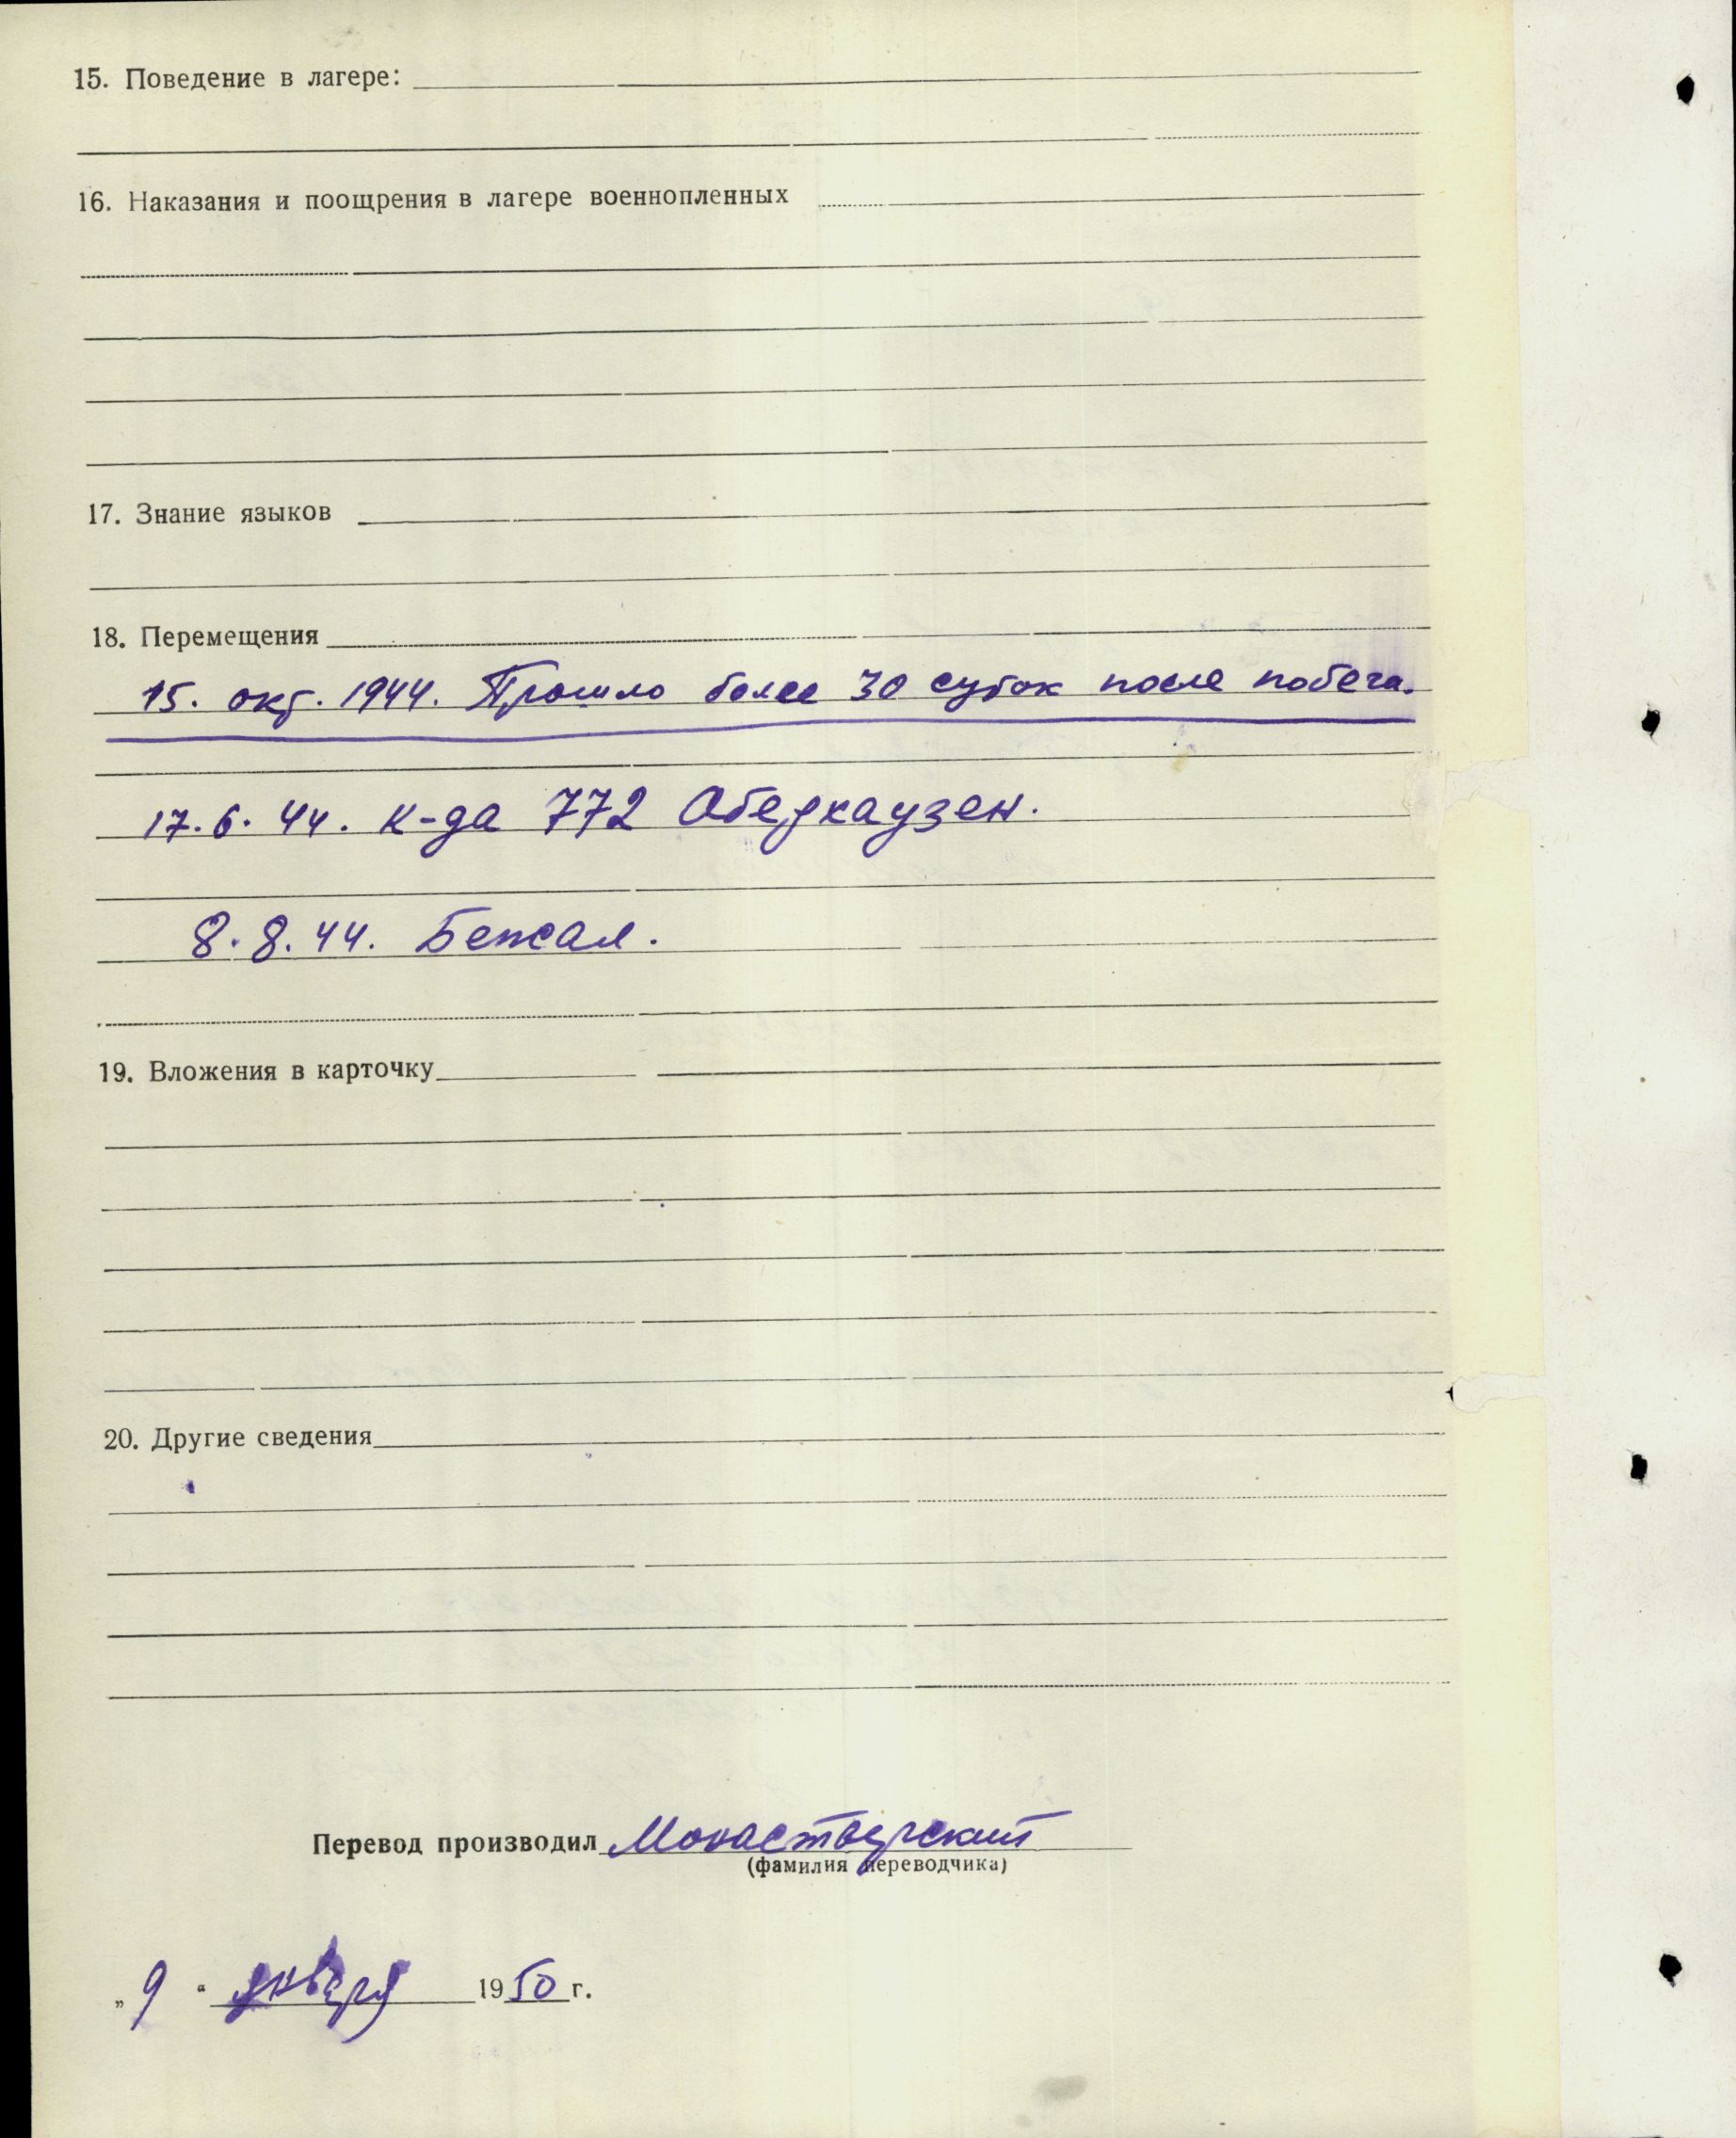 15. Поведение в лагере:
16. Наказания и поощрения в лагере военнопленных
17. Знание языков
18. Перемещения
15. окт. 1944. Прошло более 30 суток после побега.
17.6.44. к-да 772 Оберхаузен.
8.8.44. Бежал.
19. Вложения в карточку
20. Другие сведения
Перевод производил Монастырский
(фамилия переводчика)
„9“ января 1950 г.